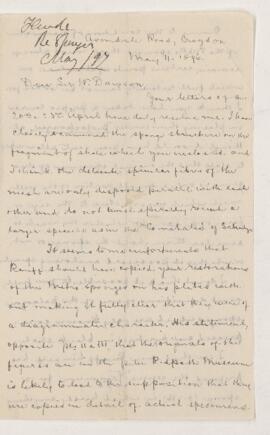 Hinde
Re Sponges
May /97
Avondale Road, Croydon,
May 11. 1896.
Dear Sir W. Dawson,
Your letters of the
20th & 23rd April have duly reached me. I have
closely examined the sponge structure on the
fragment of slate which you enclosed and
I think the delicate spicular fibres of the
mesh are only disposed parallel with each
other and do not twist spirally round a
larger spicule as in the
It seems to me unfortunate that
Rauff should have copied your restorations
of the Metis sponges on his plates with-
out making it fully clear that they were of
a diagrammatic character. His statement,
opposite that the originals of the
figures are in the Peter Redpath Museum
is likely to lead to the supposition that they
are copied in detail of actual specimens.